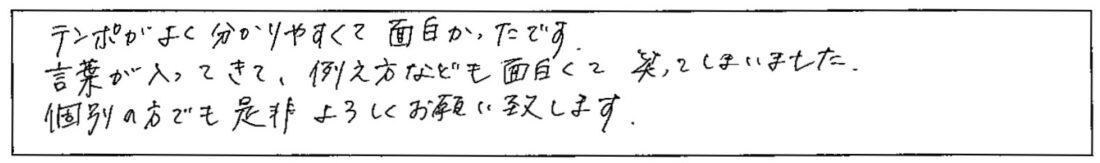 テンポがよく分かりやすくて面白かったです.
言葉が入ってきて、例え方なども面白くて 笑ってしまいました.
個別の方でも是非よろしくお願い致します.